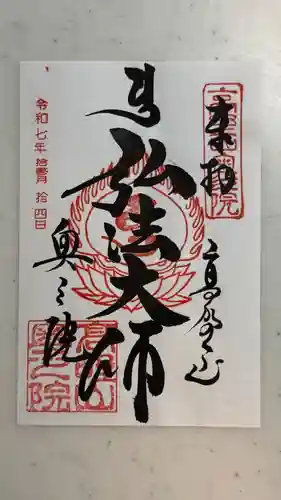 奉拝
高野山
弘法大師
奥之院
令和七年拾壹月拾四日
高野山
奥之院